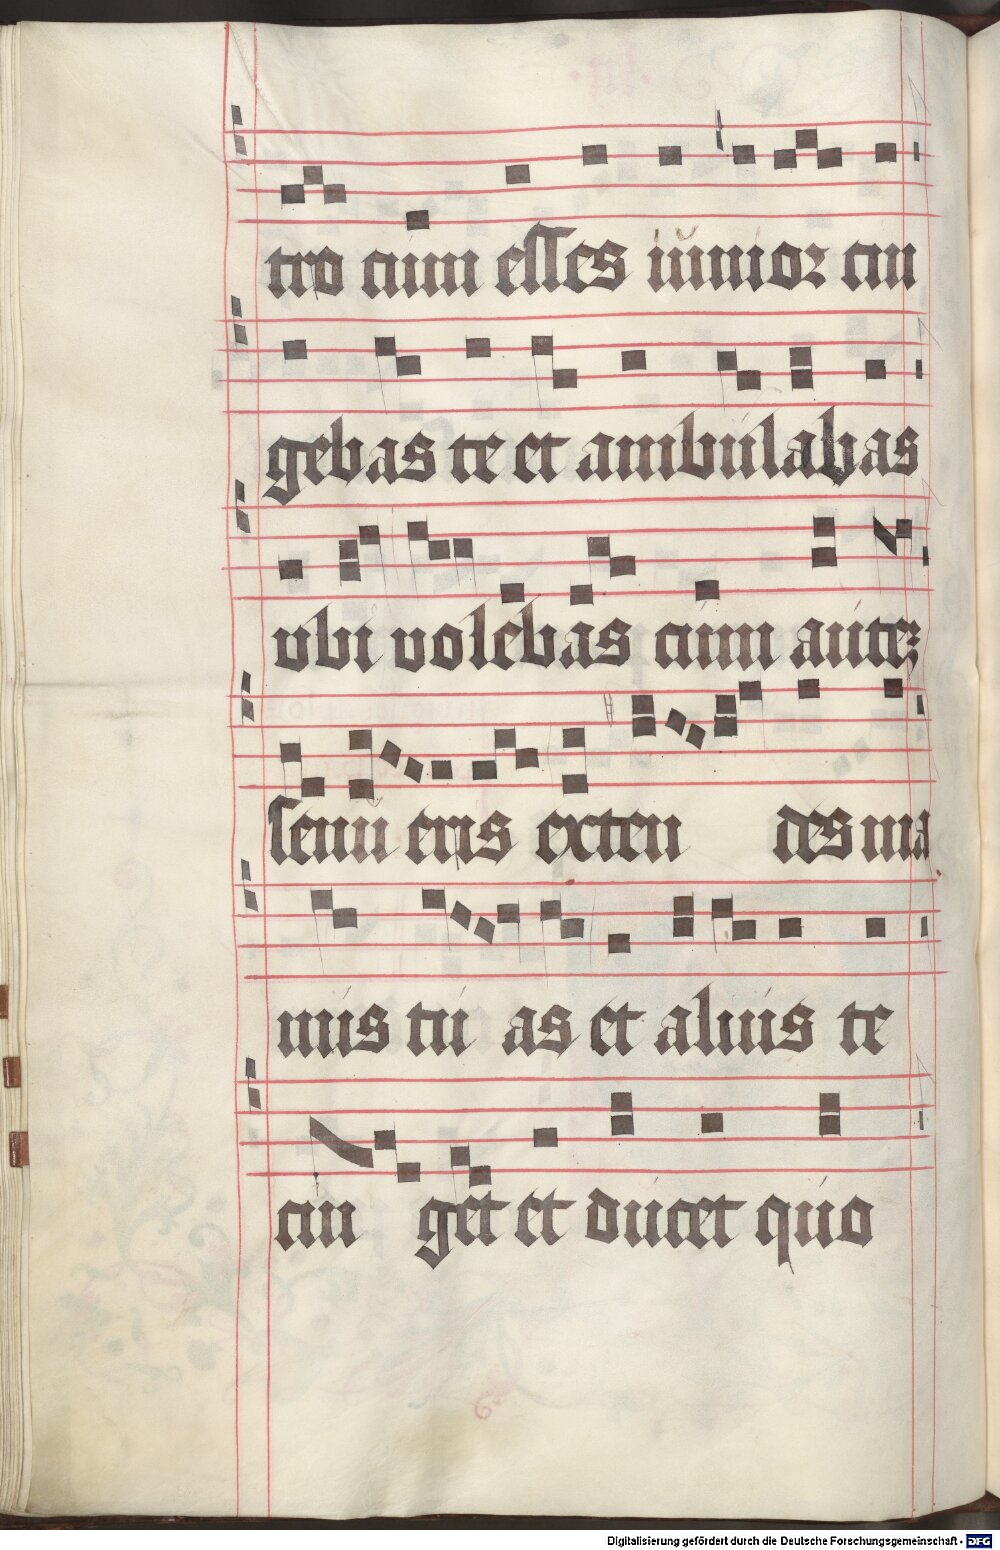 tro cum esses iunior cin
gebas te et ambulabas
ubi volebas cum autez
senu eris exten des ma
nus tu as et alius te
cin get et ducet quo
Digitalisierung gefördert durch die Deutsche Forschungsgemeinschaft - DFG